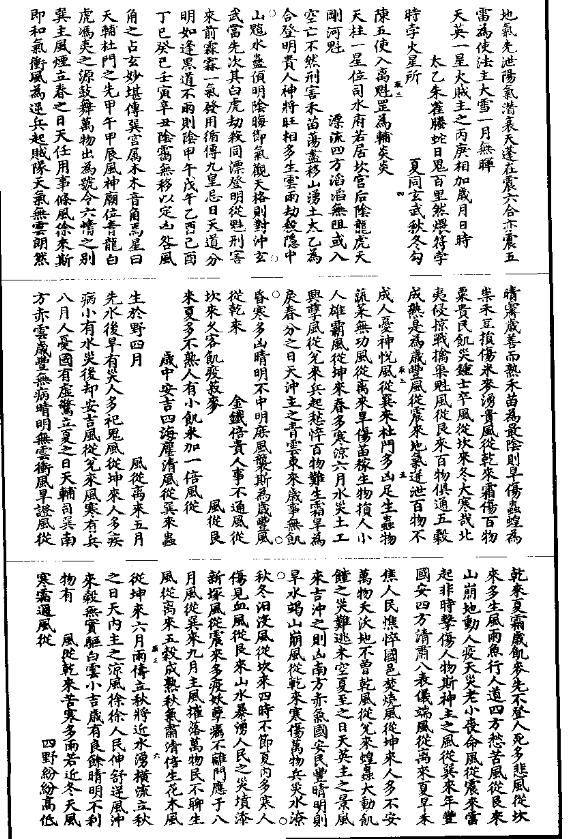 地氣先泄陽氣潛衰天蓬在震六合亦震五
雷為使法主大雪一月無暉
天英一星火賊主之丙庚相加歲月日時
太乙朱雀騰蛇日鬼百里然煨符字
時字火星所　夏同玄武秋冬勾
陳五使入离魁罡為輔炎炎
天柱一星位司水府若居坎宮后陰龍虎天
剛河魁　漂流四方滔滔無阻或入
空亡不然刑害禾苗蕩盡移山湧土太乙為
合登明貴人神將旺相多生雲雨劫殺隱中
山魈水蟲傎明陰晦卸氣觀天格則對沖玄
武當先次其白虎劫殺同漂登明從魁刑害
來前霖霖一氣發用循傳九皇忌日天道分
明如逢黑道不雨則陰甲午戊午乙酉己酉
丁巳癸巳壬寅辛丑陰霄無移以定凶咎風
角之占玄妙堪傳巽宮屬木木音角焉星曰
天輔杜門之先甲午甲辰風神廟位青龍白
虎馮夷之源鼓舞萬物出為號令六情之別
巽主風煙立春之日天任用事條風徐來斯
即和氣衝風為逆兵起賊隊天氣無雲明然
晴霽歲善而熟禾苗為最陰則旱傷蟲蝗為
柴禾豆損傷米麥湧貴風從乾來霜傷百物
粟貴民飢災鐘士卒風從坎來冬大寒哉北
夷侵掠戰擒渠魁風從艮來百物俱通五穀
成熟是為歲豐風從震來地氣逆泄百物不
成人憂神悅風從巽來杜門多凶足生蟲物
蔬菜無功風從离來旱傷苗稼生物損人小
人雄霸風從坤來春多寒涼六月水災土工
興孽風從兌來兵起愁悴百物難生霜旱為
戾春分之日天沖主之青雲東來歲事無飢
昏寒多凶晴明不中明庶風襲斯為歲豐風
從乾來　金鐵倍貴人事不通風從
坎來久客飢疫菽麥　風從艮
來夏多不熱人有小飢米加一倍風從
歲中安吉四海塵清風從巽來蟲
生於野四月　風從离來五月
先水後旱有災人多祀鬼風從坤來人多疾
病小有水災後却安吉風從兌來風寒有兵
八月人憂國有虛驚立夏之日天輔司巽南
方赤雲歲豐無病晴明無雲衝風旱證風從
乾來夏霜歲飢麥先不登人死多悲風從坎
來多生風雨魚行人道四方愁苦風從艮來
山崩地動人疫天災老小喪命風從震來雷
起非時擊傷人物斯神主之風從巽來年豐
國安四方清肅八表儀端風從离來夏旱禾
焦人民憔悴國邑焚燒風從坤來人多不安
萬物夭沃地不曾乾風從兌來蝗蟲大動飢
饉之災難逃未空夏至之日天英主之景風
來吉沖之則凶南方赤氣國安民豐晴明則
旱水竭山崩風從乾來寒傷萬物兵災水潦
秋冬汨沒風從坎來四時不節夏內多寒人
傷見血風從艮來山水暴湧人民之災墳添
新塚風從震來多疫妖孽痛不離門應于八
月風從巽來九月主風摧落萬物民不聊生
風從离來五穀成熟秋氣肅清倍生花木風
從坤來六月雨儔立秋將近水湧橫流立秋
之日天內主之涼風徐徐人民伸舒逆風沖
來穀無實驅白雲小吉歲有良餘晴明不利
物有　風從乾來苦寒多雨若近冬天風
寒霜通風從　四野紛紛高低